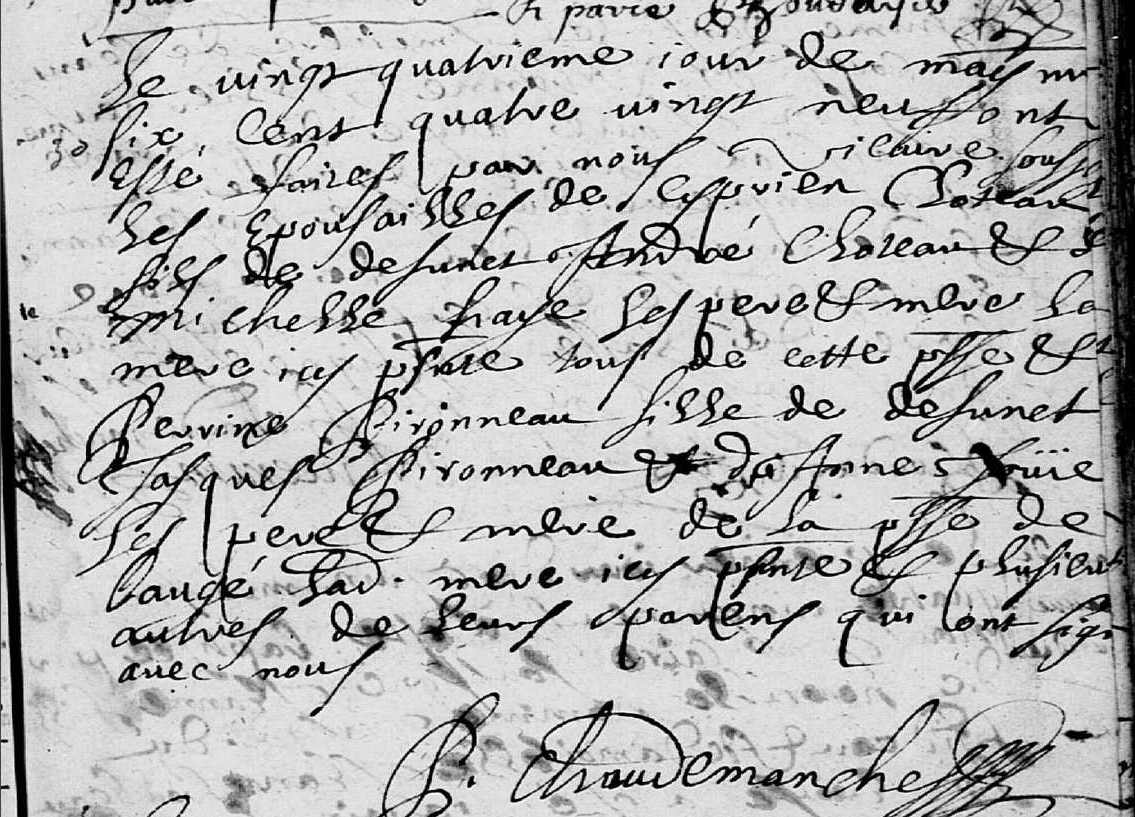 Le vingt quatrieme iour de may mi
six cent quatre vingt neuf ont
esté faites par nous vicaire soussi
les Epousailles de Cyprien Choteau
fils de defunct André Choteau & d
michelle haye ses pere & mere la
mere icy pnte tous de cette psse & 
Perrine Pironneau fille de defunct
Jasques Pironneau & de Anne
ses pere & mere de la psse de
baugé lad. mere icy pnte & plusieur
autres de leurs parens qui ont sig
avec nous
P. Chaudemanche